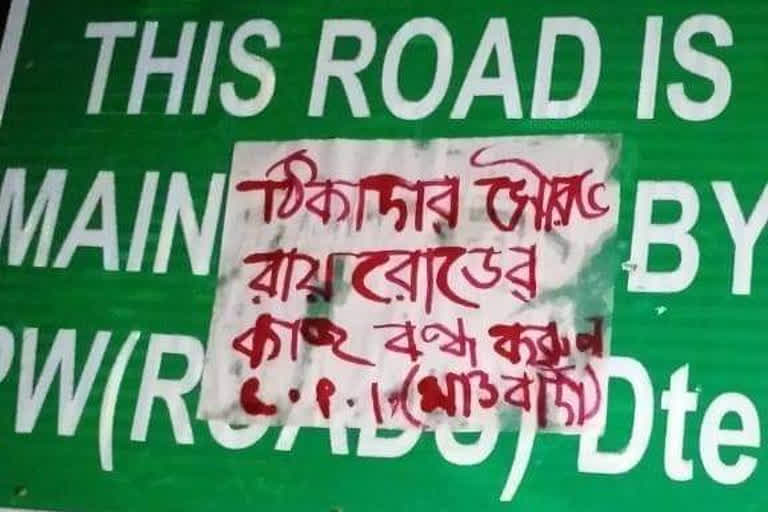 THIS ROAD IS
MAIN BY
PW(ROADS) Dte
ঠিকাদার গৌরভ
রায় রোডের
কাজ বন্ধ করুন
C.P.I.(মাওবাদী)